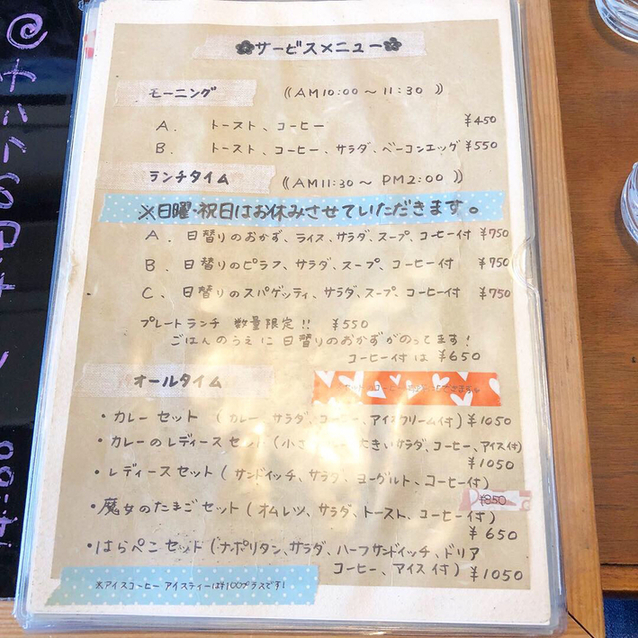 サービスメニュー
モーニング ((AM10:00～11:30))
A. トースト、コーヒー ¥450
B. トースト、コーヒー、サラダ、ベーコンエッグ ¥550
ランチタイム ((AM11:30～PM2:00))
※日曜・祝日はお休みさせていただきます。
A. 日替りのおかず、ライス、サラダ、スープ、コーヒー付 ¥750
B. 日替りのピラフ、サラダ、スープ、コーヒー付 ¥750
C. 日替りのスパゲッティ、サラダ、スープ、コーヒー付 ¥750
プレートランチ 数量限定!! ¥550
ごはんのうえに日替りのおかずがのってます!
コーヒー付は ¥650
オールタイム
・カレーセット (カレー、サラダ、コーヒー、アイスクリーム付) ¥1050
・カレーのレディースセット(小さ サラダ、コーヒー、アイス付)
¥1050
・レディースセット(サンドイッチ、サラダ、ヨーグルト、コーヒー付)
¥850
・魔女のたまごセット(オムレツ、サラダ、トースト、コーヒー付)
¥650
・はらぺこセット(ナポリタン、サラダ、ハーフサンドイッチ、ドリア
コーヒー、アイス付) ¥1050
*アイスコーヒー アイスティーは¥100プラスです!